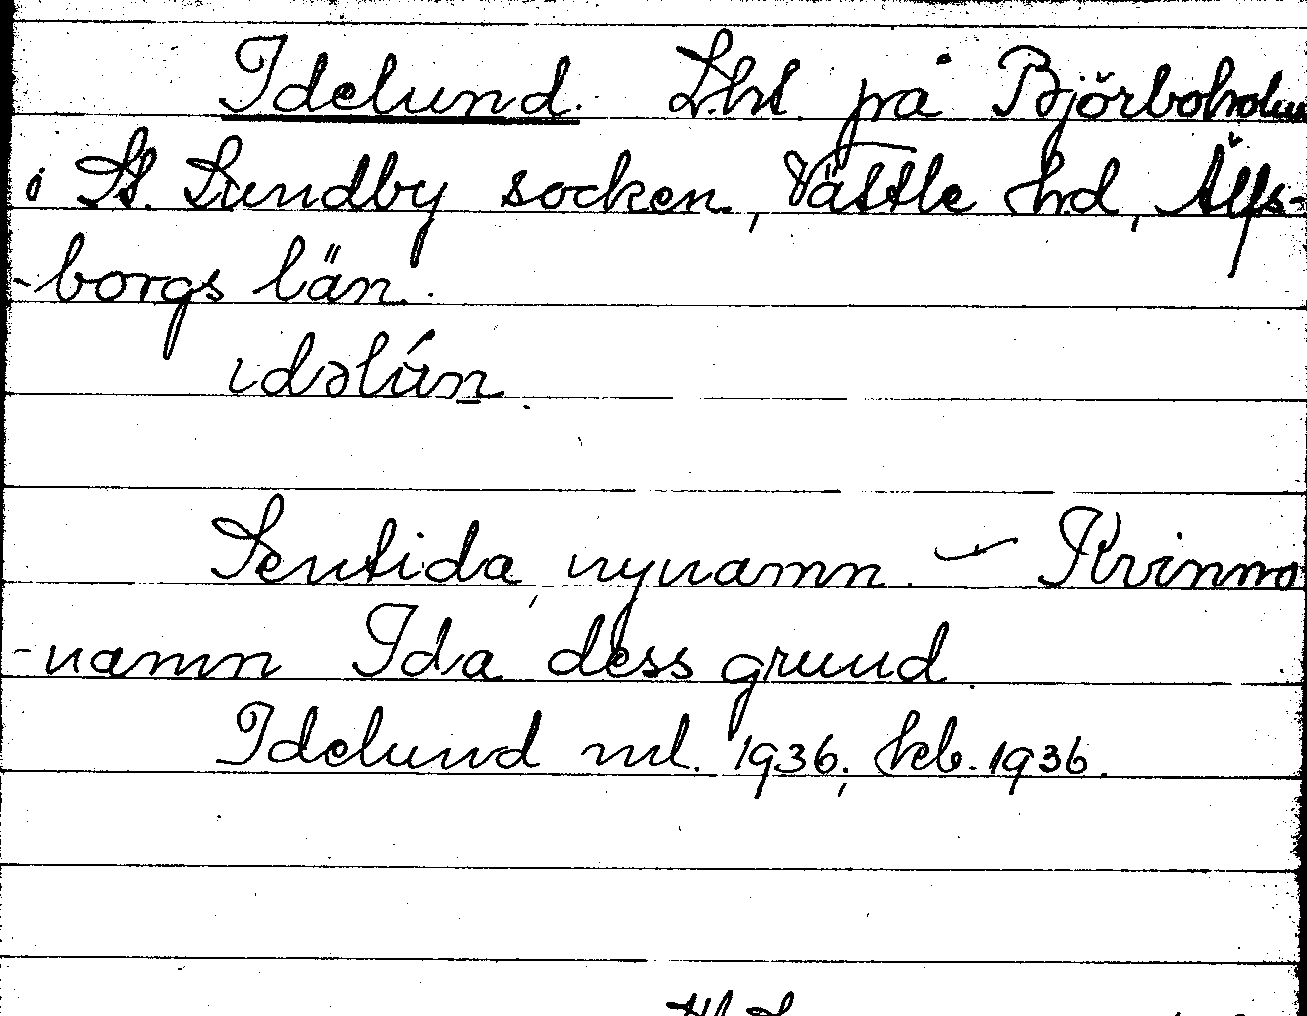 Idelund. Lht på Björboholm
i St. Lundby socken, Vättle hd, Älfs-
-borgs län.
idəlún
Sentida, nynamn. – Kvinno
-namn Ida dess grund.
Idelund ml. 1936; keb. 1936.